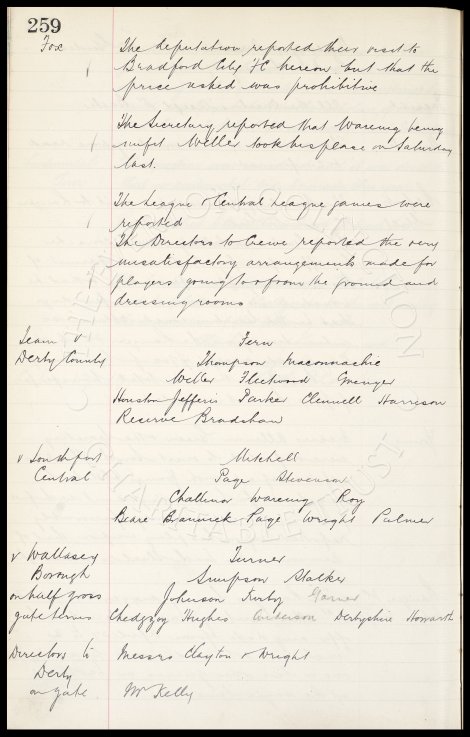 259
Fox
The deputation reported their visit to
Bradford City FC hereon but that the
price asked was prohibitive
The Secretary reported that Wareing being
unfit Weller took his place on Saturday
last.
The League & Central League games were
reported
The Directors to Crewe reported the very
unsatisfactory arrangements made for
players going to & from the ground and
dressing rooms
Team v
Derby County
Fern
Thompson Maconnachie
Weller Fleetwood Grenyer
Houston Jefferis Parker Clennell Harrison
Reserve Bradshaw
v Southport
Central
Mitchell
Page Stevenson
Challinor Wareing Roy
Beare Brannick Page Wright Palmer
v Wallasey
Borough
on half gross
gate terms
Turner
Simpson Stalker
Johnson Kirby Garner
Chedgzoy Hughes Anderson Derbyshire Howarth
Directors to
Derby
on gate
Messrs Clayton & Wright
Mr Kelly